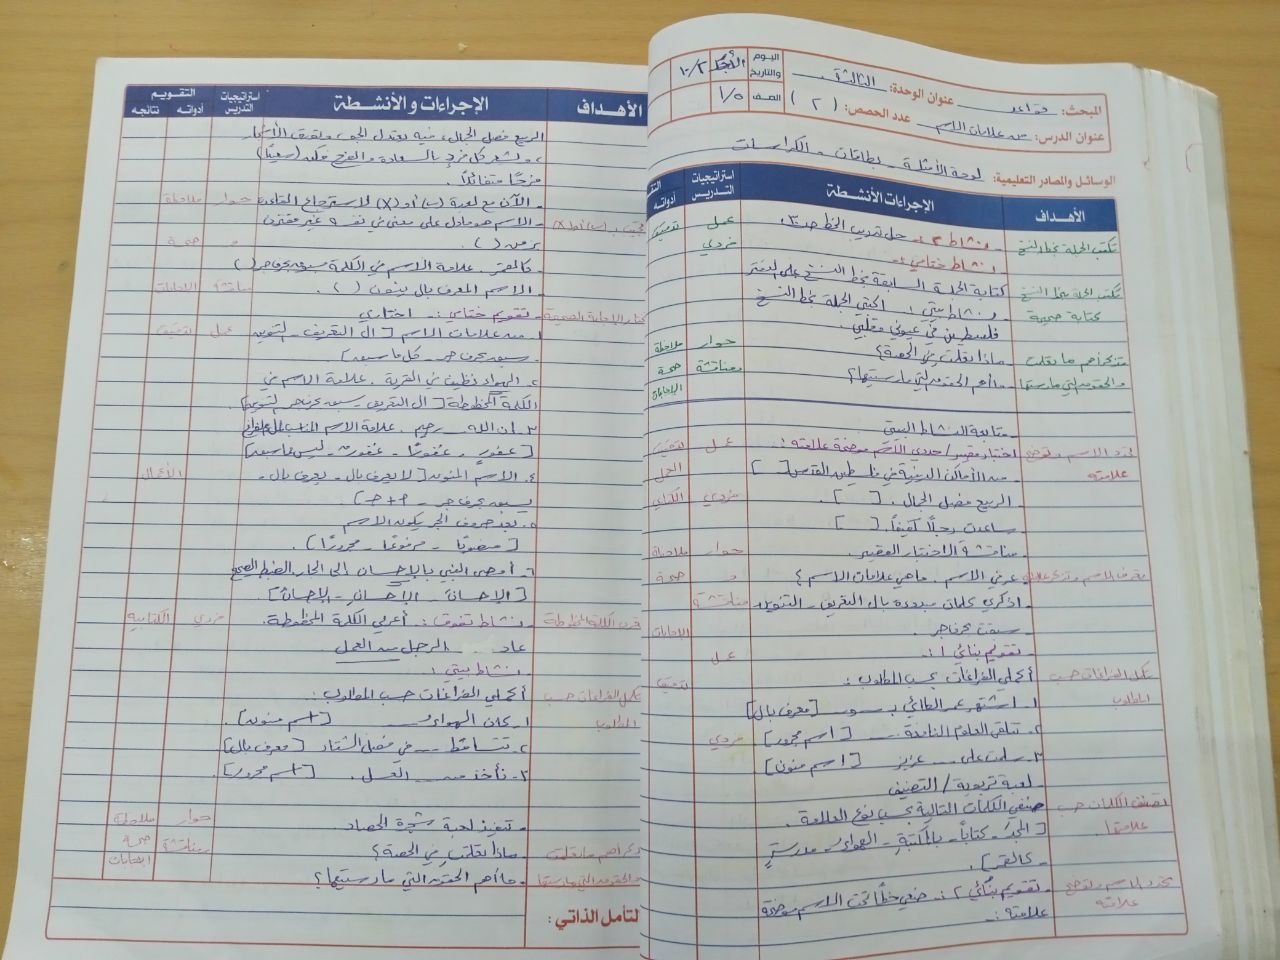 المبحث: قواعد عنوان الوحدة: الثالثة
اليوم والتاريخ الأحد ١٠/٢
عنوان الدرس: من علامات الاسم عدد الحصص: (٢)
الصف ٥/١
الوسائل والمصادر التعليمية: لوحة الأمثلة - بطاقات - الكراسات
الأهداف
الإجراءات الأنشطة
استراتيجيات التدريس
التقويم
أدواته
تكتب الجملة بخط النسخ
نشاط ٣: حل تدريب الخط ص
عمل فردي
نشاط ختامي:
تكتب الجملة بخط النسخ كتابة صحيحة
كتابة الجملة السابقة بخط النسخ على الدفتر
نشاط بيتي: اكتبي الجملة بخط النسخ
فلسطين في عيوني وقلبي.
ماذا تعلمت في الحصة؟
حوار
ملاحظة
مناقشة
صحة الإجابات
ما أهم الحقوق التي مارستيها؟
متابعة النشاط البيتي
تحدد الاسم وتوضح علامته
اختبار قصير/ حددي الاسم موضحة علامته:
عمل
فردي
من الأماكن الدينية في فلسطين القدس [ ]
الربيع فصل الجمال. [ ].
ساعدت رجلاً كفيفاً. [ ]
مناقشة الاختبار القصير.
حوار
ملاحظة
و
صحة
عرفي الاسم. ما هي علامات الاسم؟
مناقشة
الإجابات
اذكري كلمات مبدوءة بال التعريف - التنوين
سبقت بحرف جر.
تقويم بنائي ١:
عمل
تكمل الفراغات حسب المطلوب
أكملي الفراغات بحسب المطلوب:
١. اشتهر عمر الطائي بـ [معرف بال]
٢. تتلقى العلوم النافعة [اسم مجرور]
فردي
٣. سلمت على عزيز [اسم منون]
لعبة تربوية / التصنيف
تصنف الكلمات حسب علامتها.
صنفي الكلمات التالية بحسب نوع العلامة.
[الجدُّ - كتاباً - بالمكتبةِ - الهواء - مدرسةٍ
- كالقمرِ].
تحدد الاسم وتوضح علامته
تقويم بنائي ٢: ضعي خطاً تحت الاسم موضحة
علامته:
الأهداف
الإجراءات والأنشطة
استراتيجيات التدريس
التقويم
أدواته
نتائجه
الربيع فصل الجمال، فيه يعتدل الجو،
ويشعر كل فرد بالسعادة والفرح فكن (ربيعاً)
فرحاً متفائلاً.
الآن مع لعبة (√) أو (X) لاسترجاع المعلومة
حوار
ملاحظة
تجيب بـ (√) أو (X)
الاسم هو ما دل على معنى في نفسه غير مقترن
بزمن ( ).
و
صحة
كالقمر. علامة الاسم في الكلمة سبقه بحرف جر ( )
الاسم المعرف بال ينون ( ).
مناقشة
الإجابات
تختار الإجابة الصحيحة
تقويم ختامي: اختاري
١. من علامات الاسم [ال التعريف - التنوين
عمل
سبقه بحرف جر - كل ما سبق]
٢. الهواء نظيف في القرية. علامة الاسم في
الكلمة المخطوطة [ال التعريف - سبقه بحرف جر - التنوين].
٣. إن الله رحيم. علامة الاسم
[غفورٍ - غفورًا - غفورٌ - ليس مما سبق]
٤. الاسم المنون [لا يعرف بال - يعرف بال -
الأعمال
يسبق بحرف جر - أ + جـ].
٥. بعد حروف الجر يكون الاسم
[منصوبًا - مرفوعًا - مجرورًا].
٦. أوصى النبي بالإحسان إلى الجار. الضبط الصحيح
[الإحسانَ - الإحسانِ - الإحسانُ].
نشاط تفوق: أعربي الكلمة المخطوطة.
فردي
الكتابية
عاد الرجل من العمل
نشاط بيتي:
تكمل الفراغات حسب المطلوب
أكملي الفراغات حسب المطلوب:
١. كان الهواء [اسم منون].
٢. تتساقط في فصل الشتاء [معرف بال]
٣. نأخذ من العسل. [اسم مجرور].
تنفيذ لعبة شجرة الحصاد.
حوار
ملاحظة
ماذا تعلمت في الحصة؟
مناقشة
صحة
إجابات
ما أهم الحقوق التي مارستيها؟
التأمل الذاتي: